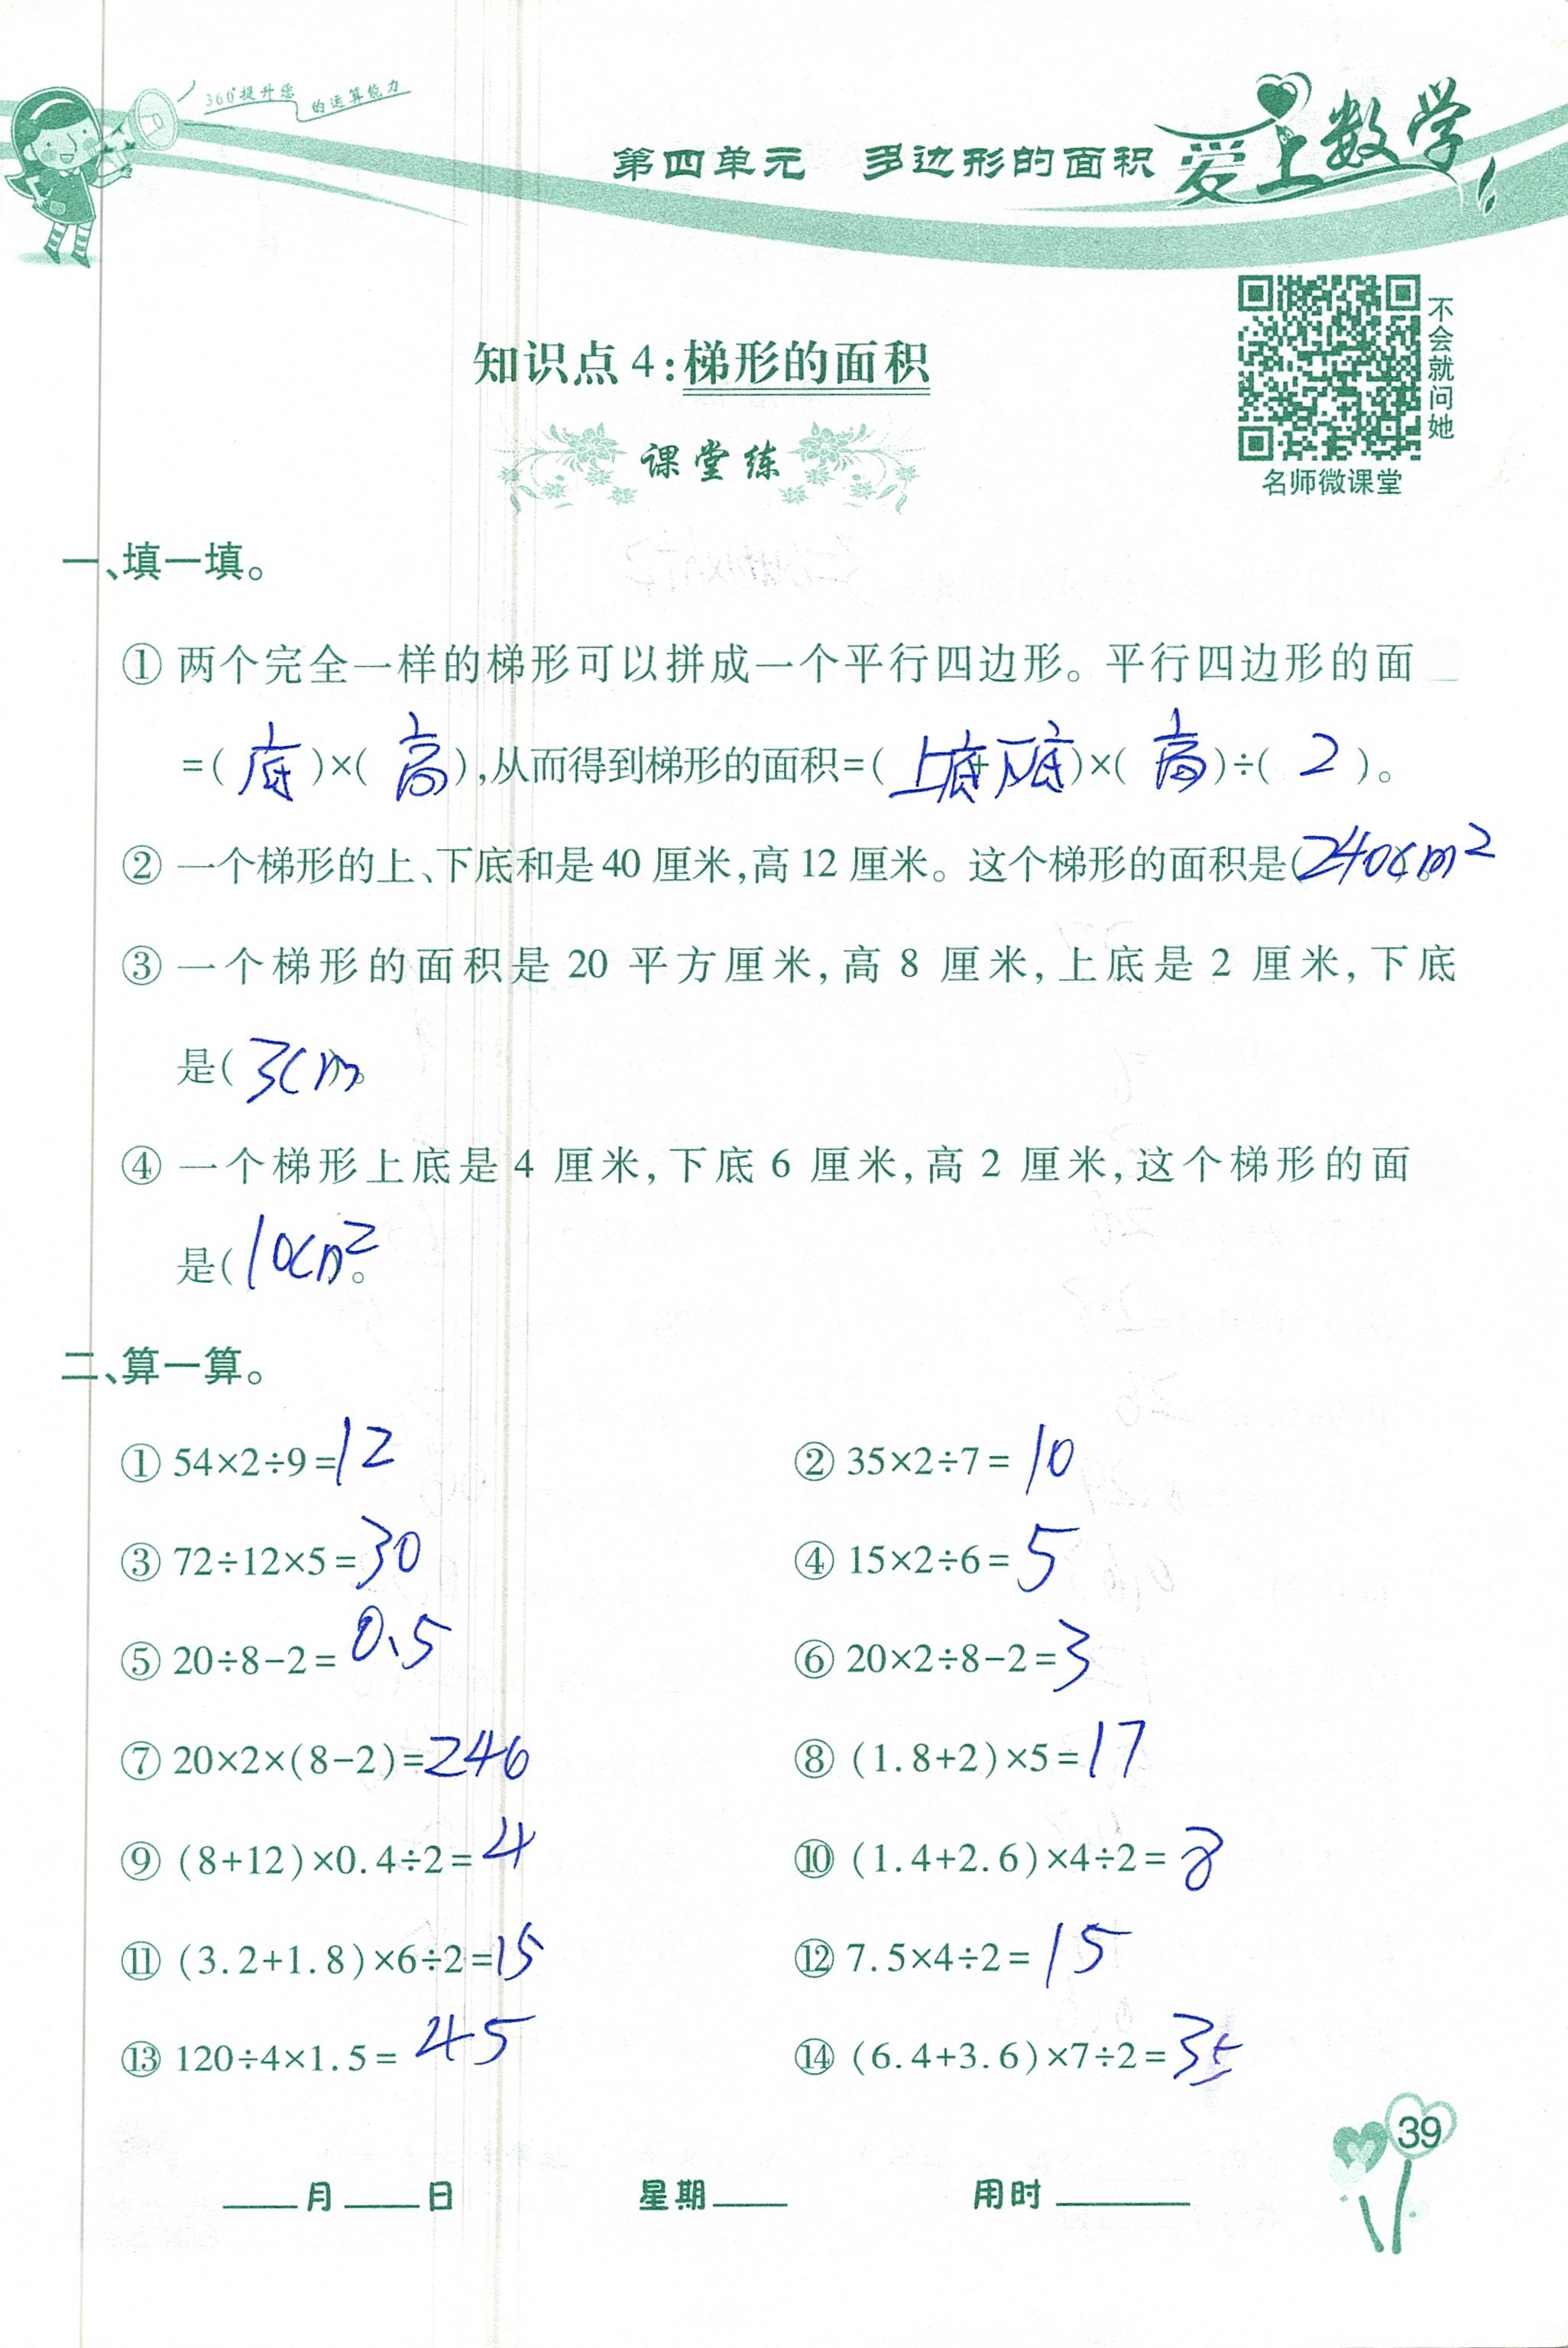 360°提升您的运算能力
第四单元 多边形的面积 爱上数学
不会就问她
名师微课堂
知识点4:梯形的面积
课堂练
一、填一填。
① 两个完全一样的梯形可以拼成一个平行四边形。平行四边形的面
=( 底 )×( 高 ),从而得到梯形的面积=( 上底+下底 )×( 高 )÷( 2 )。
② 一个梯形的上、下底和是40厘米,高12厘米。这个梯形的面积是( 240cm² )。
③ 一个梯形的面积是20平方厘米,高8厘米,上底是2厘米,下底
是( 3cm )。
④ 一个梯形上底是4厘米,下底6厘米,高2厘米,这个梯形的面
是( 10cm² )。
二、算一算。
① 54×2÷9=12 ② 35×2÷7=10
③ 72÷12×5=30 ④ 15×2÷6=5
⑤ 20÷8-2=0.5 ⑥ 20×2÷8-2=3
⑦ 20×2×(8-2)=240 ⑧ (1.8+2)×5=17
⑨ (8+12)×0.4÷2=4 ⑩ (1.4+2.6)×4÷2=8
⑪ (3.2+1.8)×6÷2=15 ⑫ 7.5×4÷2=15
⑬ 120÷4×1.5=45 ⑭ (6.4+3.6)×7÷2=35
39
____月____日 星期____ 用时______